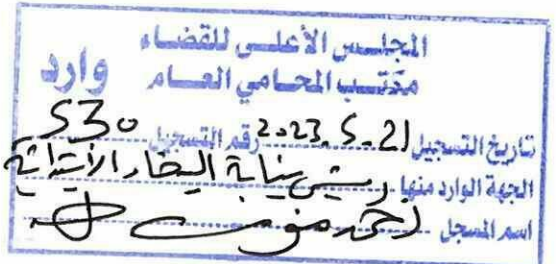 المجلس الأعلى للقضاء
مكتب المحامي العام وارد
تاريخ التسجيل 2023.5.21 رقم التسجيل 530
الجهة الوارد منها رئيس نيابة البحار الابتدائية
اسم المسجل أحمد